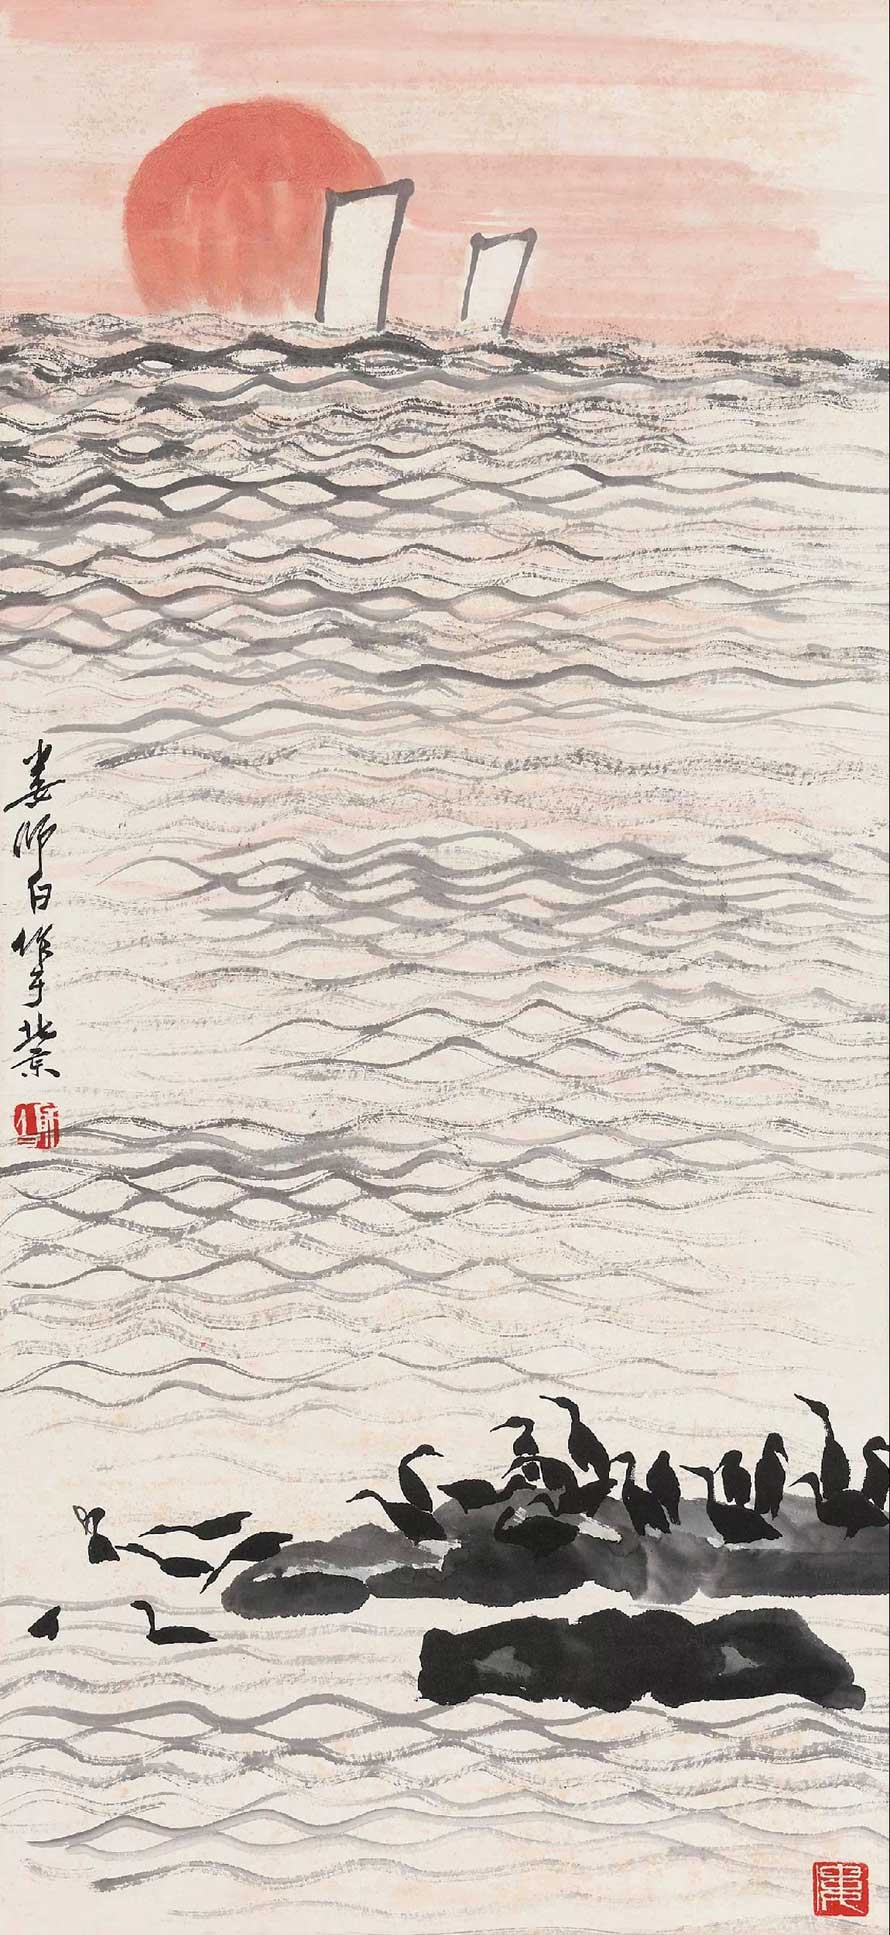 娄师白作于北京